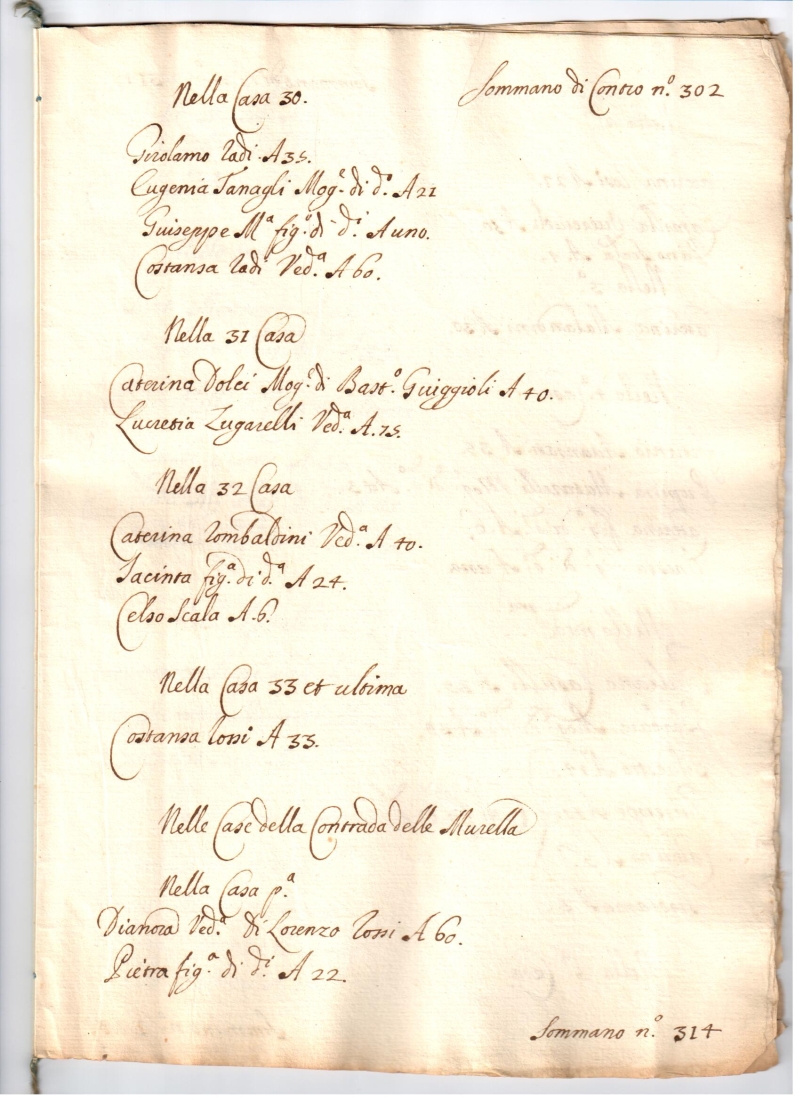 Nella Casa 30.
Sommano di Contro n.º 302
Girolamo Radi A 35.
Eugenia Tanagli Mog.ᵉ di d.º A 21
Giuseppe M.ª fig.º di d.ⁱ A uno.
Costansa Radi Ved.ª A 60.
Nella 31 Casa
Caterina Dolci Mog.ᵉ di Bast.º Guiggioli A 40.
Lucretia Lugarelli Ved.ª A. 75.
Nella 32 Casa
Caterina Rombaldini Ved.ª A 40.
Jacinta fig.ª di d.ª A 24.
Celso Scala A. 6.
Nella Casa 33 et ultima
Costansa Rossi A 33.
Nelle Case della Contrada delle Murella
Nella Casa p.ª
Dianora Ved.ª di Lorenzo Rossi A 60.
Pietra fig.ª di d.ⁱ A 22.
Sommano n.º 314